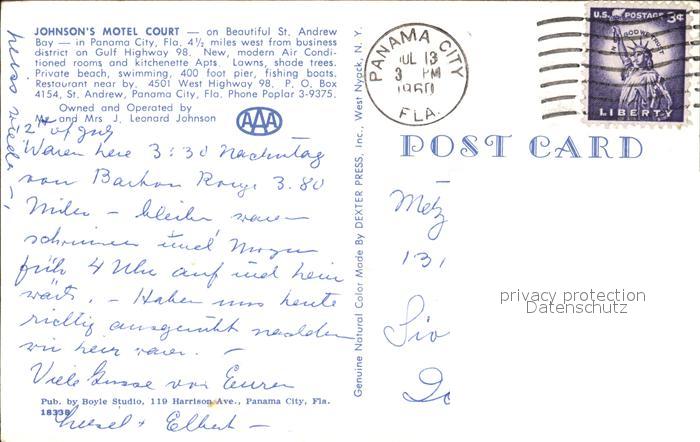 JOHNSON'S MOTEL COURT — on Beautiful St. Andrew
Bay — in Panama City, Fla. 4½ miles west from business
district on Gulf Highway 98. New, modern Air Condi-
tioned rooms and kitchenette Apts. Lawns, shade trees.
Private beach, swimming, 400 foot pier, fishing boats.
Restaurant near by. 4501 West Highway 98, P. O. Box
4154, St. Andrew, Panama City, Fla. Phone Poplar 3-9375.
Owned and Operated by
Mr. and Mrs J. Leonard Johnson
AAA
Waren here 3:30 Nachmitag
von 3.80
Miles — bleiben
schwimmen und Morgen
früh 4 Uhr auf und heim
wärts. — Haben uns heute
richtig ausgeruht nachdem
wir hier waren. —
Viele Grüsse von Euren
Liesel + Elbert —
Pub. by Boyle Studio, 119 Harrison Ave., Panama City, Fla.
18338
Genuine Natural Color Made By DEXTER PRESS, Inc., West Nyack, N. Y.
PANAMA CITY
JUL 13
3 PM
1960
FLA.
U.S. POSTAGE 3¢
IN GOD WE TRUST
LIBERTY
POST CARD
Metz
131
privacy protection
Datenschutz